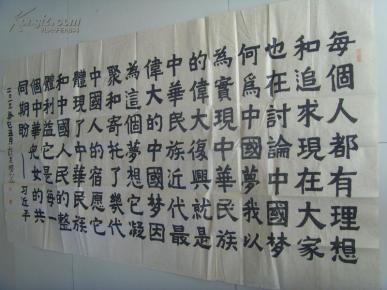 每個人都有理想
和追求現在大家
也在討論中國梦
何為中國夢我以
為實現中華民族
的偉大復興就是
中華民族近代最
偉大的中國梦因
為這個夢想它凝
聚和寄托了幾代
中國人的宿愿它
體現了中華民族
和中國人民的整
體利益它是每一
個中華兒女的共
同期盼——习近平